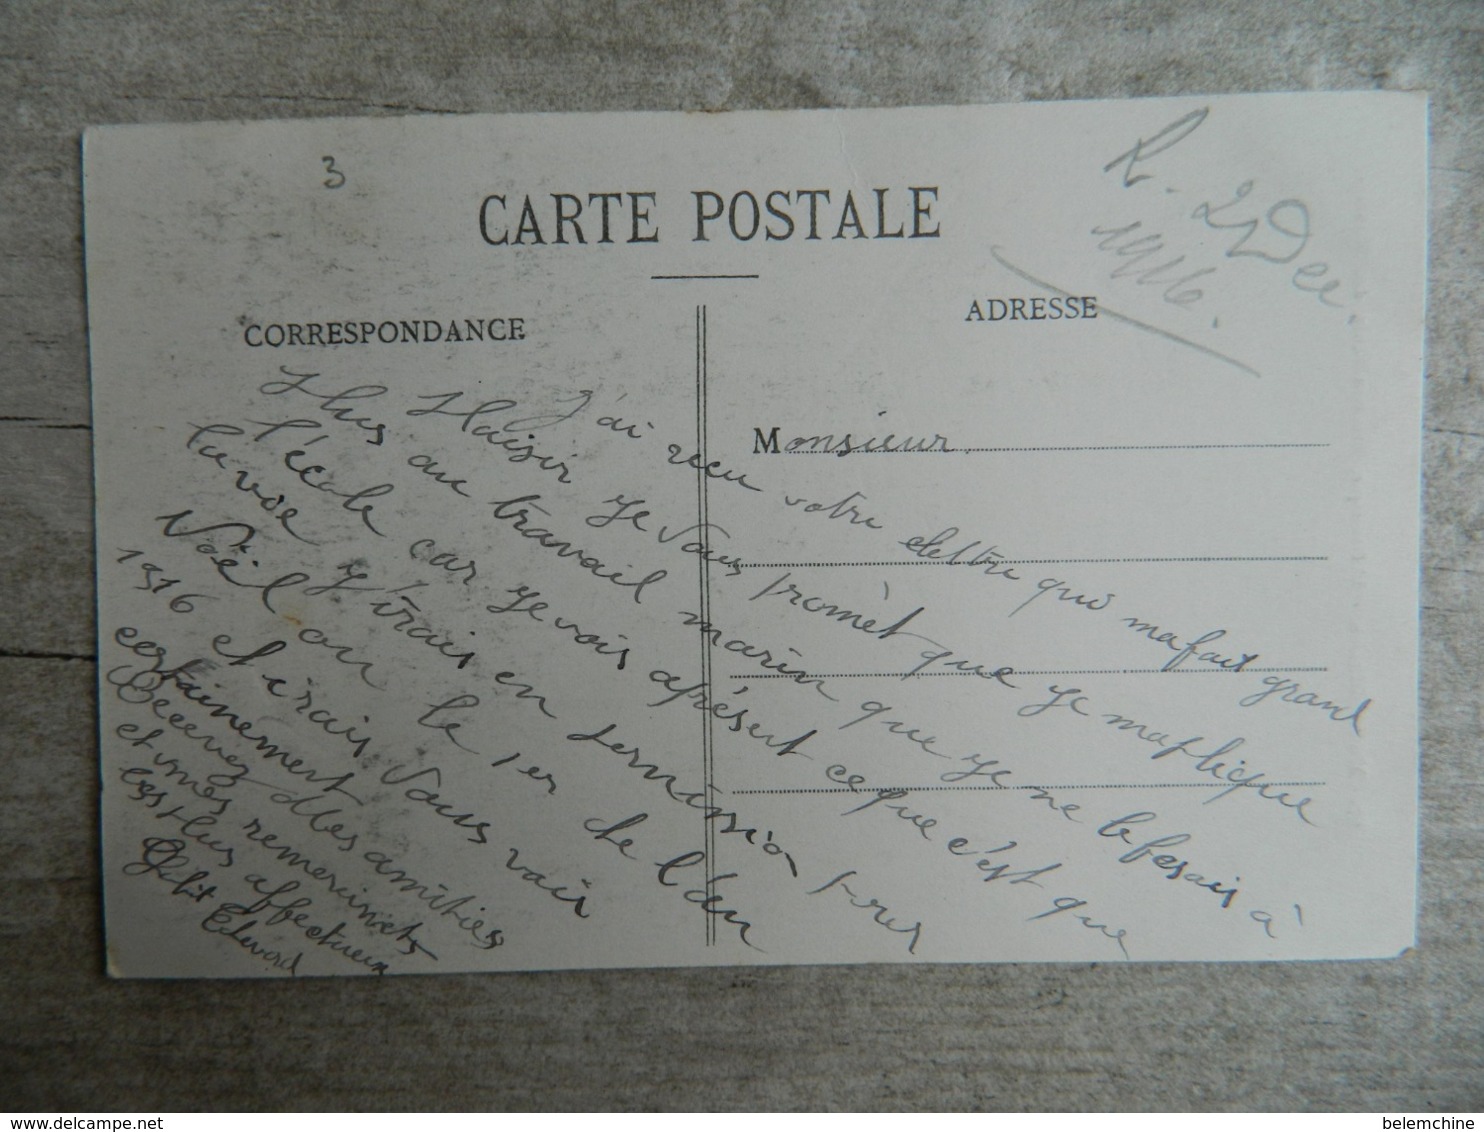 3
R. 2 Dec.
1916.
CARTE POSTALE
CORRESPONDANCE
ADRESSE
Monsieur.
J'ai recu votre lettre qui ma fait grand
Plaisir je vous promèt que je maplique
Plus au travail marin que je ne le fesais à
l'école car je vois aprésent ce que c'est que
la vie j'irais en permission pour
Noël ou le 1er de l'an
1916 et irais vous voir
certainement
Recevez Mes amitiés
et mes remerciments
les Plus affectueux
Petit Edward
belemchine